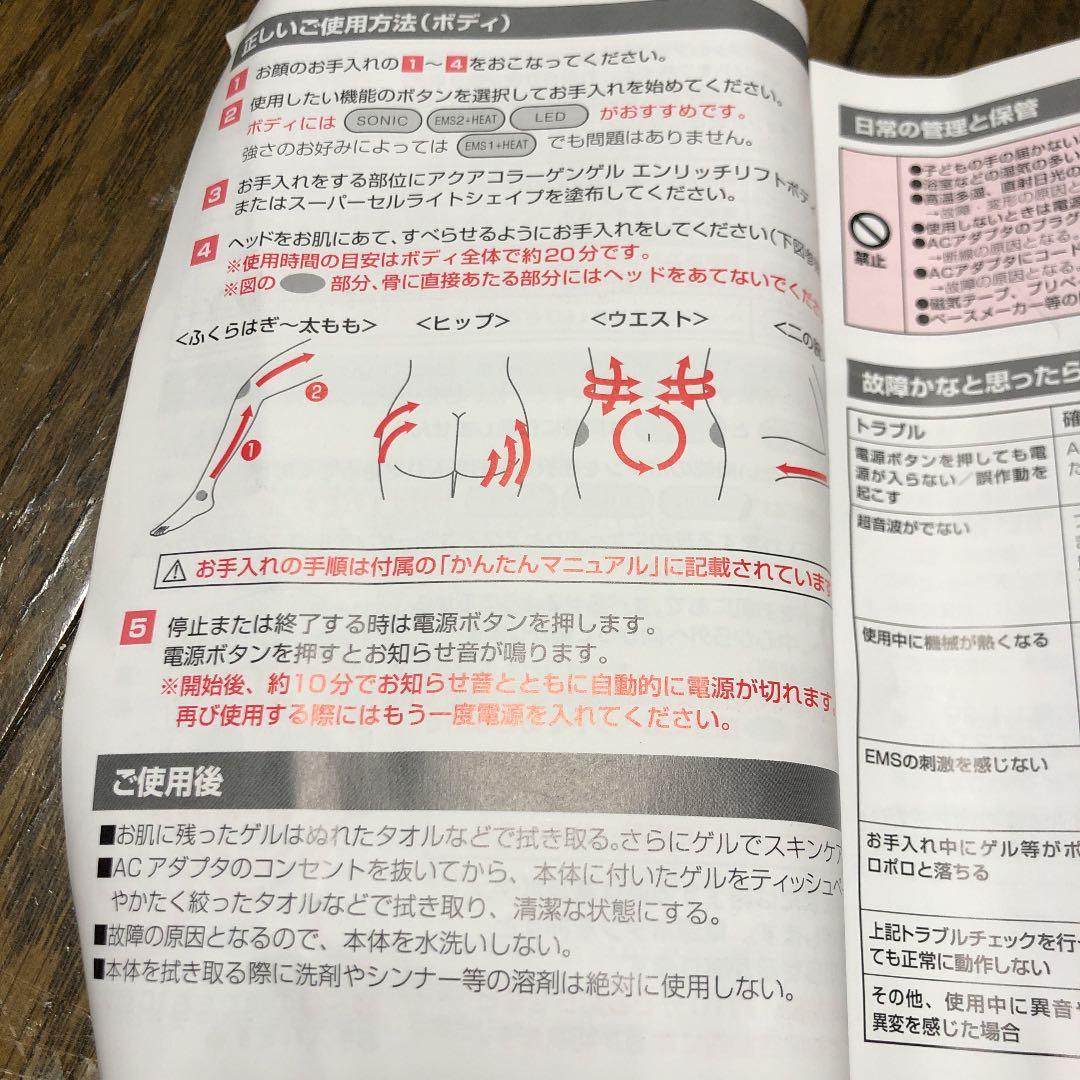 正しいご使用方法(ボディ)
1 お顔のお手入れの1～4をおこなってください。
2 使用したい機能のボタンを選択してお手入れを始めてください。
ボディには SONIC EMS2+HEAT LED がおすすめです。
強さのお好みによっては EMS1+HEAT でも問題はありません。
3 お手入れをする部位にアクアコラーゲンゲル エンリッチリフトボディ
またはスーパーセルライトシェイプを塗布してください。
4 ヘッドをお肌にあて、すべらせるようにお手入れをしてください(下図参
※使用時間の目安はボディ全体で約20分です。
※図の 部分、骨に直接あたる部分にはヘッドをあてないでくだ
<ふくらはぎ～太もも>
<ヒップ>
<ウエスト>
<二の
1
2
⚠ お手入れの手順は付属の「かんたんマニュアル」に記載されています
5 停止または終了する時は電源ボタンを押します。
電源ボタンを押すとお知らせ音が鳴ります。
※開始後、約10分でお知らせ音とともに自動的に電源が切れます
再び使用する際にはもう一度電源を入れてください。
ご使用後
■お肌に残ったゲルはぬれたタオルなどで拭き取る。さらにゲルでスキンケア
■ACアダプタのコンセントを抜いてから、本体に付いたゲルをティッシュペ
やかたく絞ったタオルなどで拭き取り、清潔な状態にする。
■故障の原因となるので、本体を水洗いしない。
■本体を拭き取る際に洗剤やシンナー等の溶剤は絶対に使用しない。
日常の管理と保管
禁止
●子どもの手の届かない
●浴室などの湿気の多い
●高温多湿、直射日光の
→故障、変形の原因と
●使用しないときは電源
●ACアダプタのプラグ
→断線の原因となる。
●ACアダプタにコート
→故障の原因となる。
●磁気テープ、プリペ
●ペースメーカー等の
故障かなと思ったら
トラブル
確
電源ボタンを押しても電
源が入らない／誤作動を
起こす
A
た
超音波がでない
使用中に機械が熱くなる
EMSの刺激を感じない
お手入れ中にゲル等がポ
ロポロと落ちる
上記トラブルチェックを行っ
ても正常に動作しない
その他、使用中に異音や
異変を感じた場合